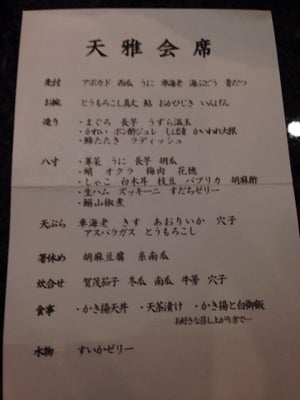 天雅会席
先付 アボカド 西瓜 うに 車海老 海ぶどう 青だつ
お椀 とうもろこし真丈 鮎 おかひじき いんげん
造り ・まぐろ 長芋 うずら温玉
・かれい ポン酢ジュレ しば漬 かいわれ大根
・鯵たたき ラディッシュ
八寸 ・蓴菜 うに 長芋 胡瓜
・蛸 オクラ 梅肉 花穂
・しゃこ 白木耳 枝豆 パプリカ 胡麻酢
・生ハム ズッキーニ すだちゼリー
・鰯山椒煮
天ぷら 車海老 きす あおりいか 穴子
アスパラガス とうもろこし
箸休め 胡麻豆腐 糸南瓜
炊合せ 賀茂茄子 冬瓜 南瓜 牛蒡 穴子
食事 ・かき揚天丼 ・天茶漬け ・かき揚と白御飯
お好きな召し上がり方で…
水物 すいかゼリー